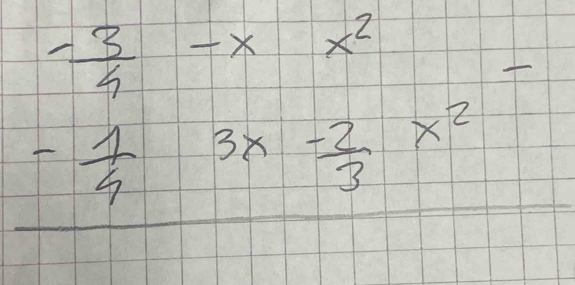 -3/4 -x x² -
-1/4 3x -2/3 x²